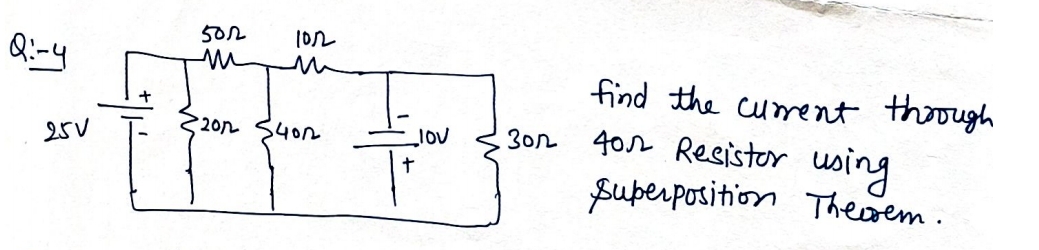 50Ω 10Ω
Q:-4
+ -
25V 20Ω 40Ω 10V 30Ω
- +
find the current through
40Ω Resistor using
Superposition Theorem.